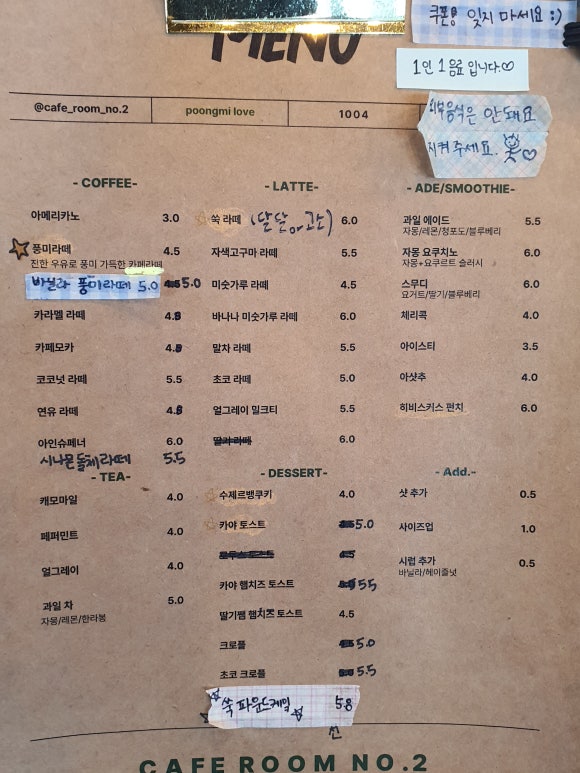 쿠폰 잊지 마세요 :)
MENU
1인 1음료 입니다.♡
외부음식은 안돼요
지켜주세요. ♡
@cafe_room_no.2
poongmi love
1004
- COFFEE-
아메리카노 3.0
풍미라떼 4.5
진한 우유로 풍미 가득한 카페라떼
바닐라 풍미라떼 5.0 5.0
카라멜 라떼
카페모카
코코넛 라떼 5.5
연유 라떼
아인슈페너 6.0
시나몬돌체라떼 5.5
- TEA-
캐모마일 4.0
페퍼민트 4.0
얼그레이 4.0
과일 차 5.0
자몽/레몬/한라봉
- LATTE-
쑥 라떼 6.0
자색고구마 라떼 5.5
미숫가루 라떼 4.5
바나나 미숫가루 라떼 6.0
말차 라떼 5.5
초코 라떼 5.0
얼그레이 밀크티 5.5
딸기 라떼 6.0
- DESSERT-
수제르뱅쿠키 4.0
카야 토스트 5.0
카야 햄치즈 토스트 5.5
딸기쨈 햄치즈 토스트 4.5
크로플 5.0
초코 크로플 5.5
쑥 파운드케잌 5.8
- ADE/SMOOTHIE-
과일 에이드 5.5
자몽/레몬/청포도/블루베리
자몽 요쿠치노 6.0
자몽+요쿠르트 슬러시
스무디 6.0
요거트/딸기/블루베리
체리콕 4.0
아이스티 3.5
아샷추 4.0
히비스커스 펀치 6.0
- Add.-
샷 추가 0.5
사이즈업 1.0
시럽 추가 0.5
바닐라/헤이즐넛
CAFE ROOM NO.2